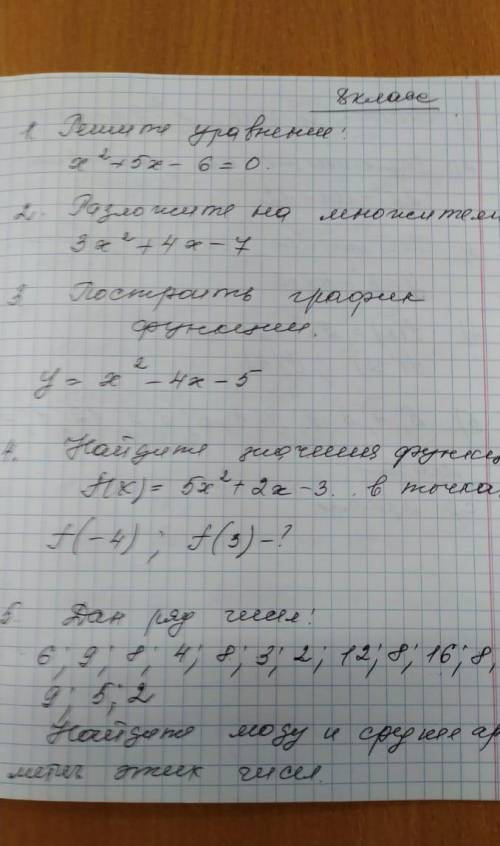 8 класс
1. Решите уравнение:
x² + 5x - 6 = 0.
2. Разложите на множители
3x² + 4x - 7
3. Построить график
функции.
y = x² - 4x - 5
4. Найдите значения функц
f(x) = 5x² + 2x - 3. в точка
f(-4); f(3) - ?
5. Дан ряд чисел:
6; 9; 8; 4; 8; 3; 2; 12; 8; 16; 8;
9; 5; 2
Найдите моду и среднее ар
метич этих чисел.